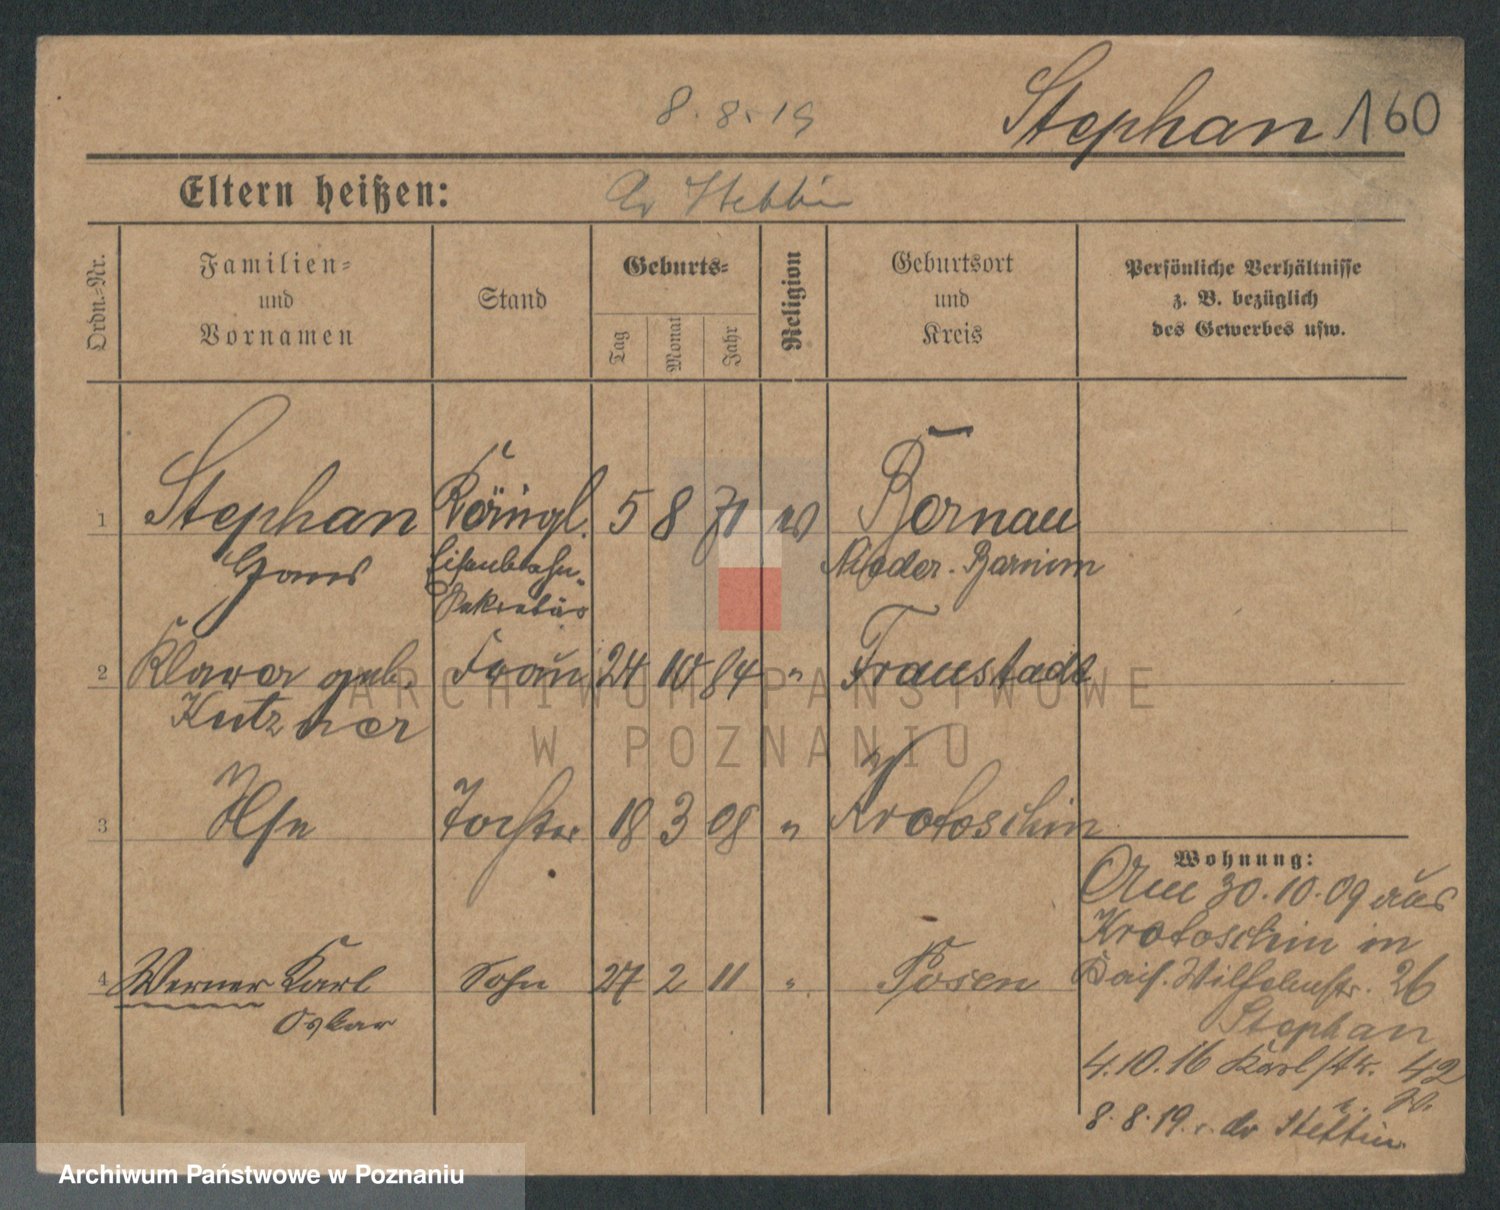 8. 8. 19
Stephan 160
Eltern heißen:
Stettin
Ordn.-Nr.
Familien-
und
Vornamen
Stand
Geburts-
Tag
Monat
Jahr
Religion
Geburtsort
und
Kreis
Persönliche Verhältnisse
z. B. bezüglich
des Gewerbes usw.
1 Stephan Königl. 5 8 71 Bernau
Hans Eisenbahn- Nieder-Barnim
Sekretär
2 Klara geb. Frau 24 10 84 " Fraustadt
Kutzner
3 Ilse Tochter 18 3 08 " Krotoschin
Wohnung:
Am 30.10.09 aus
Krotoschin in
4 Werner Karl Sohn 27 2 11 " Posen
Kais. Wilhelmstr. 26
Oskar
Stephan
4.10.16 Karlstr. 42
8.8.19. Stettin
ARCHIWUM PAŃSTWOWE
W POZNANIU
Archiwum Państwowe w Poznaniu